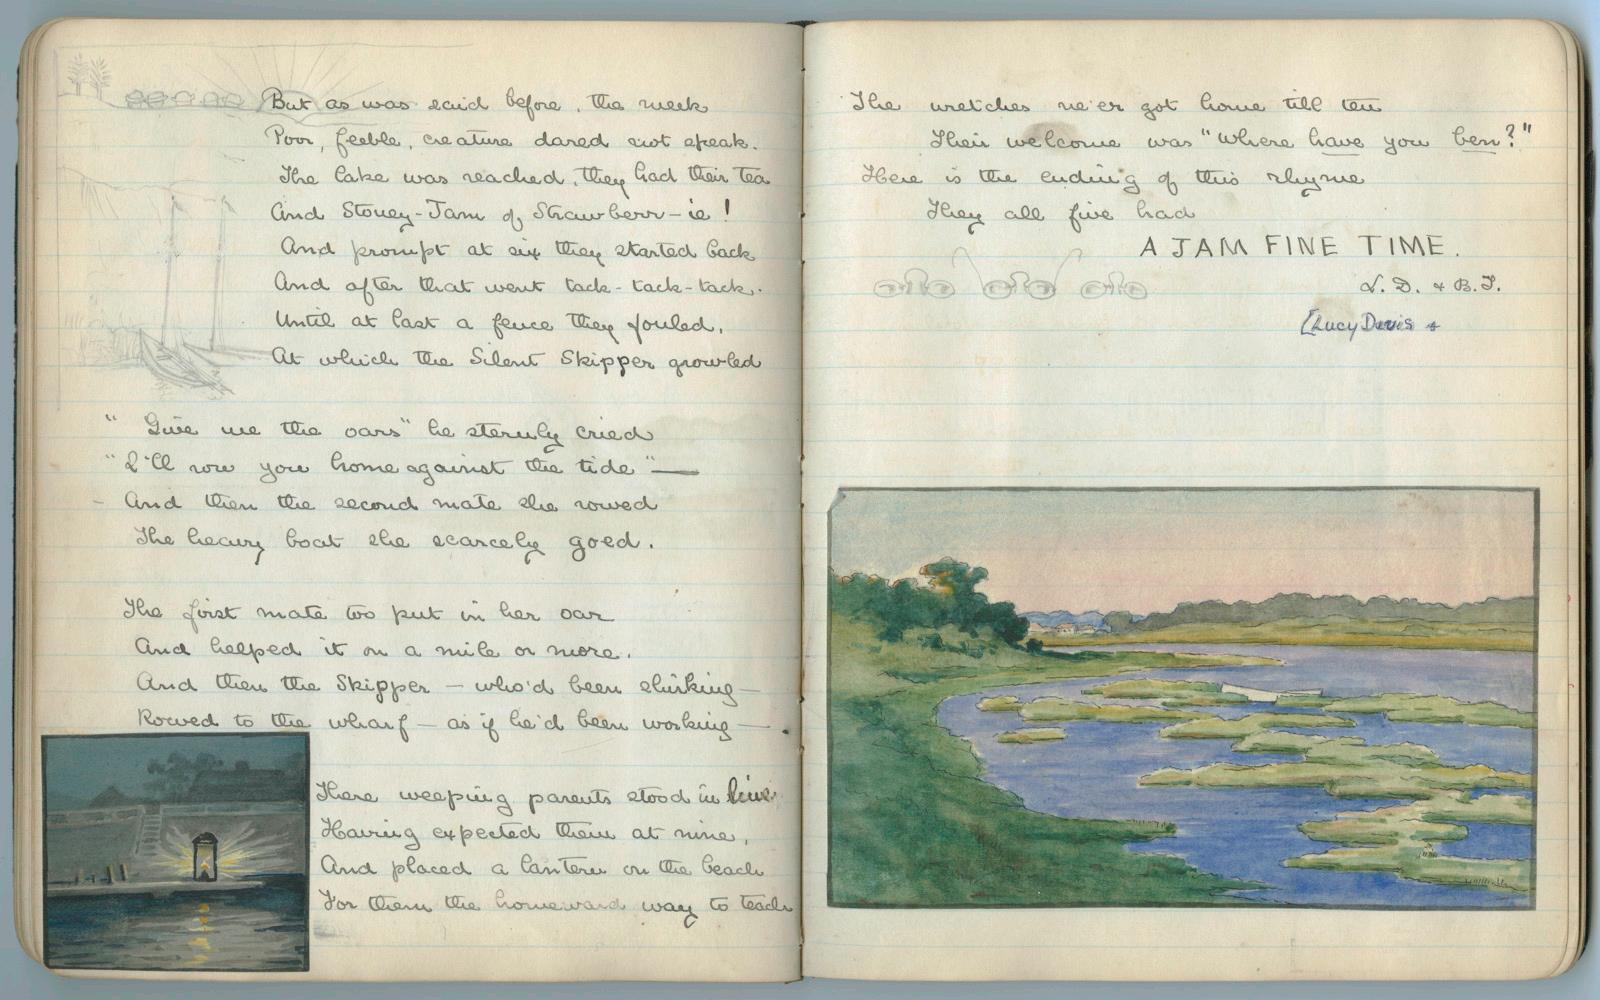 But as was said before, the meek
Poor, feeble, creature dared not speak.
The lake was reached, they had their tea
And Stoney-Jam of Strawberr-ie!
And prompt at six they started back
And after that went tack-tack-tack.
Until at last a fence they fouled,
At which the Silent Skipper growled
"Give me the oars" he sternly cried
"I'll row you home against the tide"—
- And then the second mate she rowed
The heavy boat she scarcely goed.
The first mate too put in her oar
And helped it on a mile or more.
And then the Skipper - who'd been shirking-
Rowed to the wharf - as if he'd been working-
There weeping parents stood in line
Having expected them at nine,
And placed a lantern on the beach
For them the homeward way to teach
The wretches ne'er got home till ten
Their welcome was "where have you ben?"
Here is the ending of this rhyme
They all five had
A JAM FINE TIME.
L. D. & B.T.
[Lucy Davis +